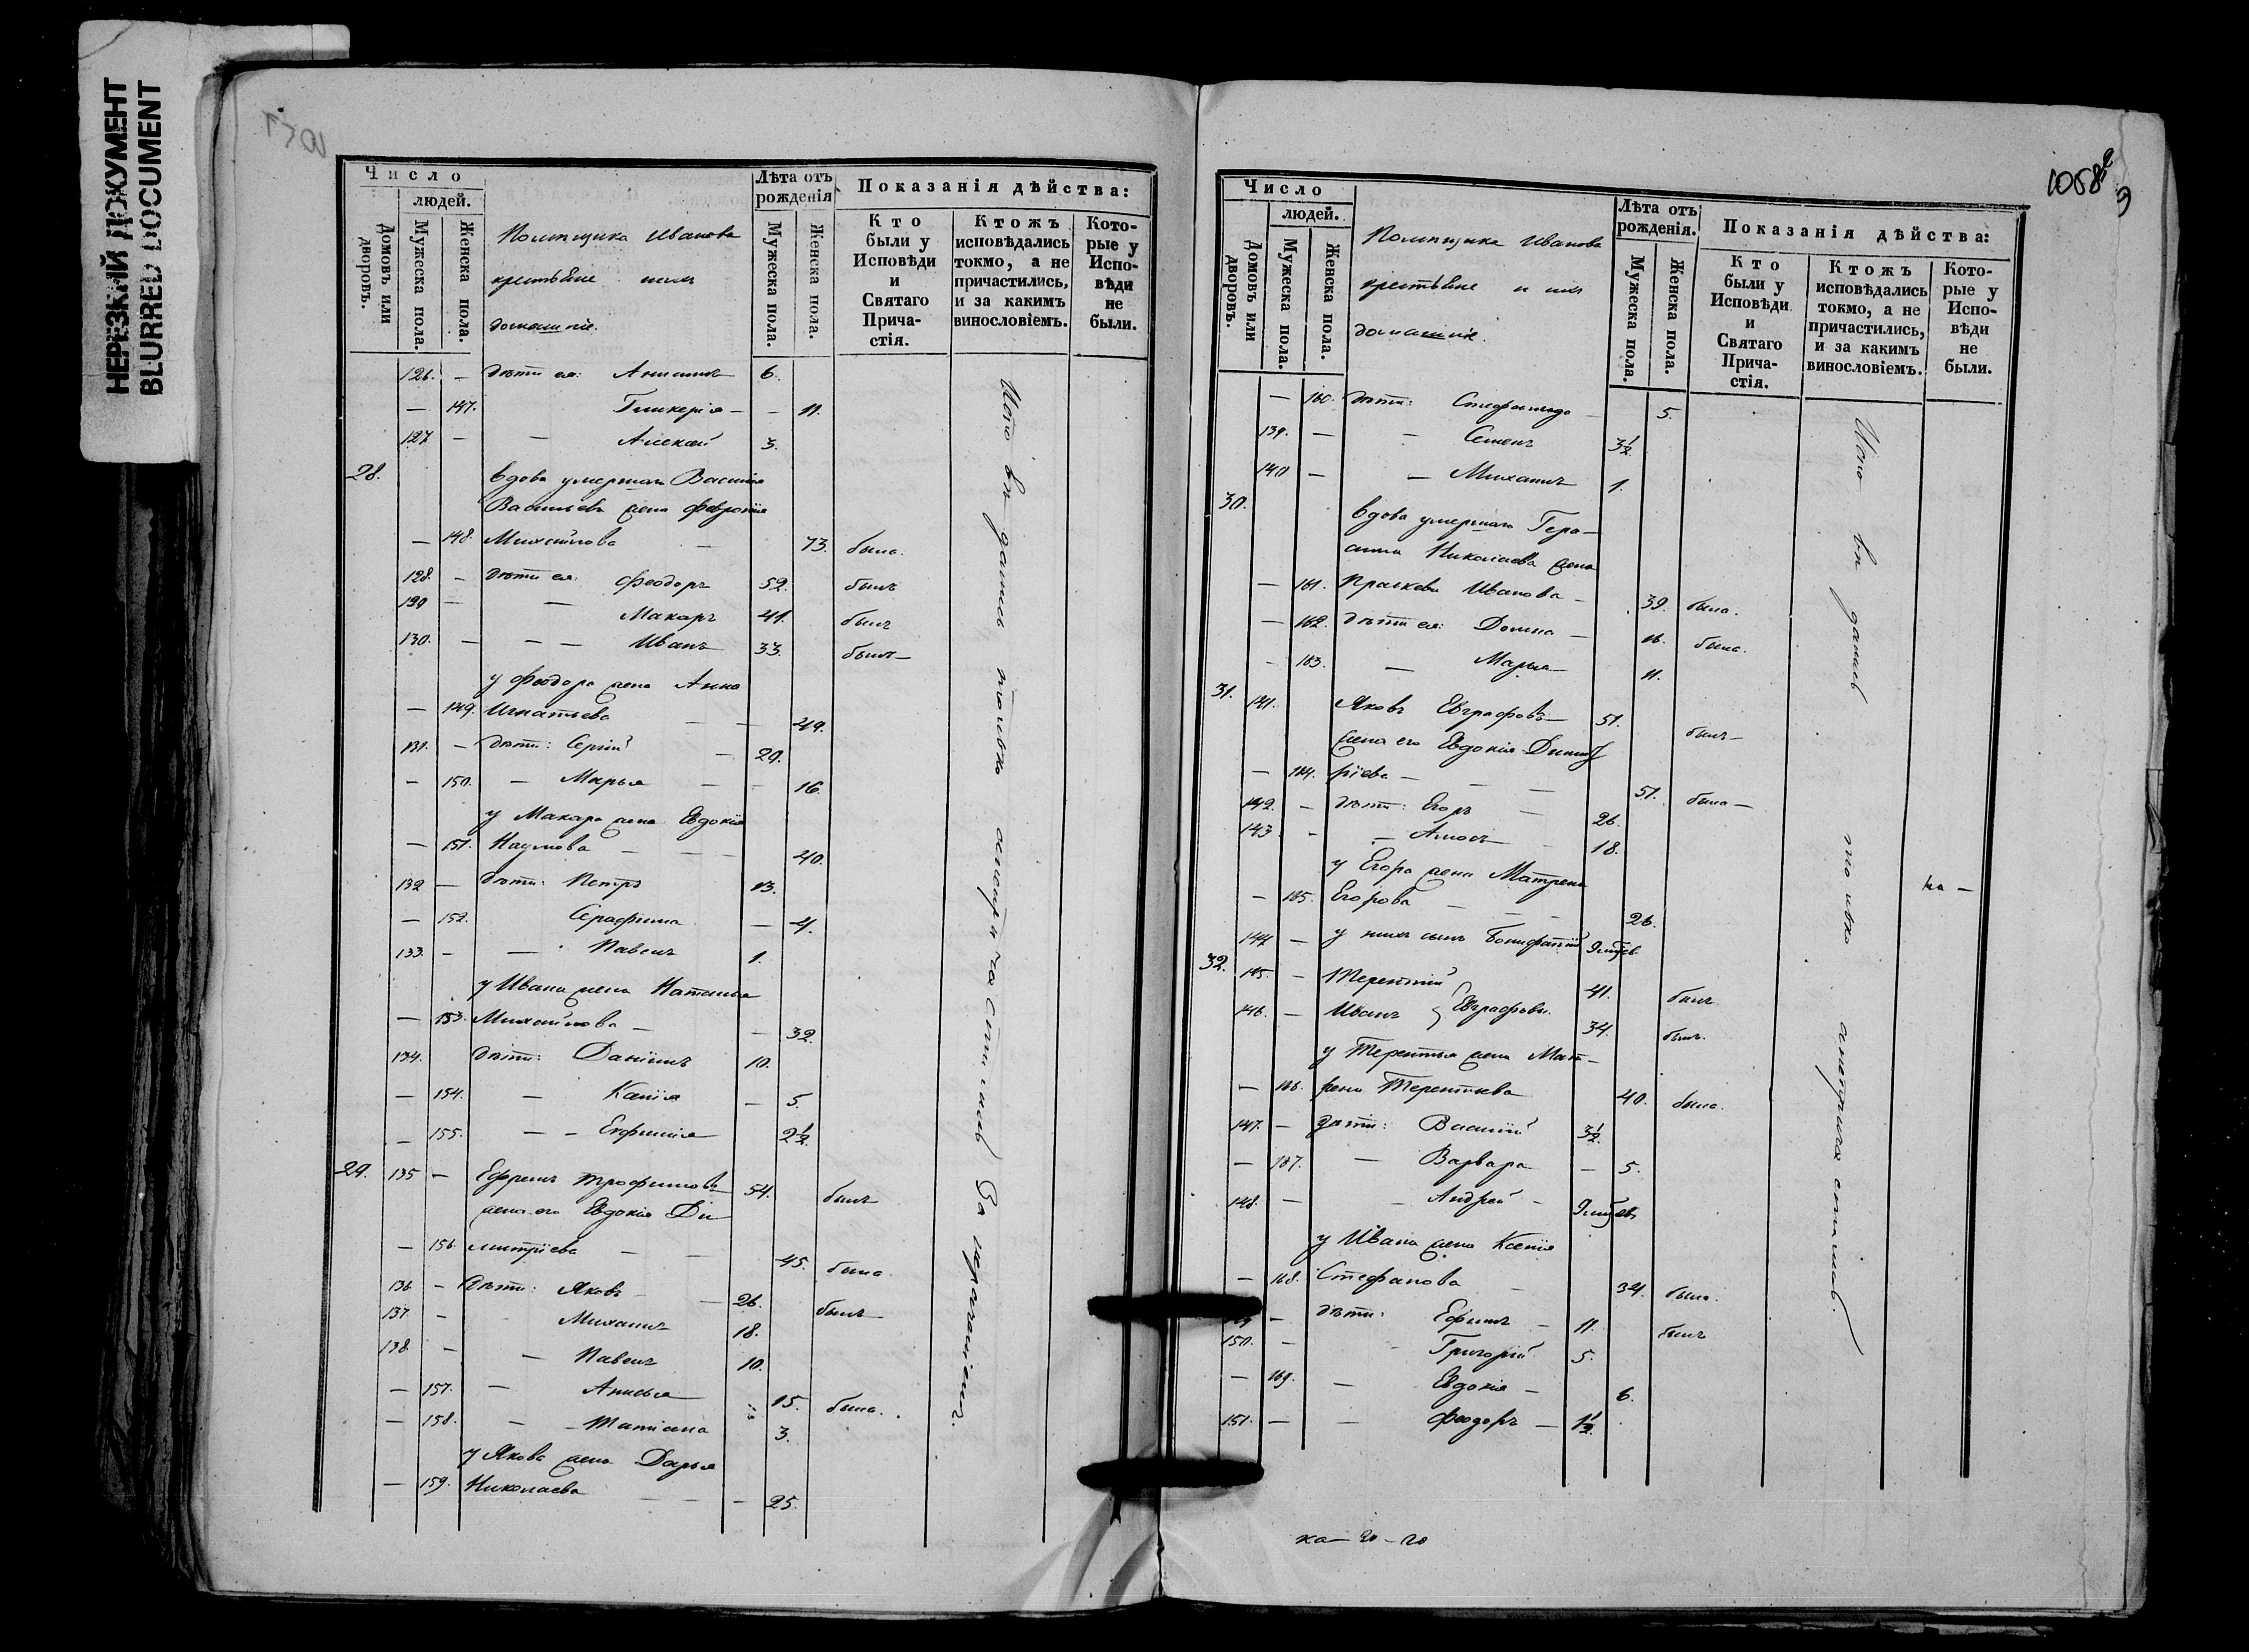 НЕРЕЗКИЙ ДОКУМЕНТ
BLURRED DOCUMENT
Число
людей.
Домовъ или дворовъ.
Мужеска пола.
Женска пола.
Помѣщика Иванова
крестьяне и ихъ
домашніе.
Лѣта отъ рожденія
Мужеска пола.
Женска пола.
Показанія дѣйства:
Кто были у Исповѣди и Святаго Прича-стія.
Ктожъ исповѣдались токмо, а не причастились, и за какимъ винословіемъ.
Кото-рые у Испо-вѣди не были.
126. — дѣти ея: Анисимъ 6.
— 147. Гликерія — — 11.
127 — — Алексѣй 3.
28. вдова умершаго Василія
Васильева жена Февронія
— 148. Михайлова — 73. была.
128. — дѣти ея: Феодоръ 52. былъ
129 — — Макаръ 41. былъ
130. — — — Иванъ 33. былъ —
у Феодора жена Анна
— 149. Игнатьева — — 49.
131. — дѣти: Сергій — 20.
— 150. — Марья — — 16.
у Макара жена Евдокія
— 151. Наумова — — — 40.
132 — дѣти: Петръ 13.
— 152. Серафима — 4.
133. — — Павелъ 1.
у Ивана жена Наталья
— 153. Михайлова — — 32.
134. дѣти: Даніилъ 10.
— 154. — Ксенія — 5.
— 155. — — Евфимія 2½
29. 135 — Ефремъ Трофимовъ 54. былъ
жена его Евдокія Ди
— 156 митріева — — 45. была.
136 — дѣти: Яковъ — — 26. былъ
137. — Михаилъ 18.
138. — — Павелъ 10.
— 157. — Анисья 15. была.
— 158. — — Татіана 3.
у Якова жена Дарья
— 159. Николаева — — — 25.
За нераченіемъ.
1058
Число
людей.
Домовъ или дворовъ.
Мужеска пола.
Женска пола.
Помѣщика Иванова
крестьяне и ихъ
домашніе.
Лѣта отъ рожденія.
Мужеска пола.
Женска пола.
Показанія дѣйства:
Кто были у Исповѣди и Святаго Прича-стія.
Ктожъ исповѣдались токмо, а не причастились, и за какимъ винословіемъ.
Кото-рые у Испо-вѣди не были.
— 160. дѣти: Стефанида — 5.
139. — — Семенъ 3½
140 — — Михаилъ 1.
30. вдова умершаго Гера—
сима Николаева жена
— 161. Прасковья Иванова — 39. была.
— 162. дѣти ея: Домна — 16. была.
— 163. — Марья — 11.
31. 141. Яковъ Евграфовъ — 51. былъ —
жена его Евдокія Димит
— 164. ріева — — — 51. была —
142. — дѣти: Егоръ — 26.
143. — — Амосъ — 18.
у Егора жена Матрена
— 165. Егорова — — — 26.
144 — у нихъ сынъ Бонифатій
32. 145. — Терентій 41. былъ
146. — Иванъ } Евграфовы. 34. былъ.
у Терентья жена Мат—
— 166. рена Терентьева 40. была.
147. — дѣти: Василій 3½
— 167. — Варвара — 5.
148. — — Андрей —
у Ивана жена Ксенія
— 168. Стефанова — 34. была.
— дѣти: Ефимъ — 11. былъ
150. — Григорій 5.
— 169. — Евдокія — 6.
151. — — Феодоръ — 1½